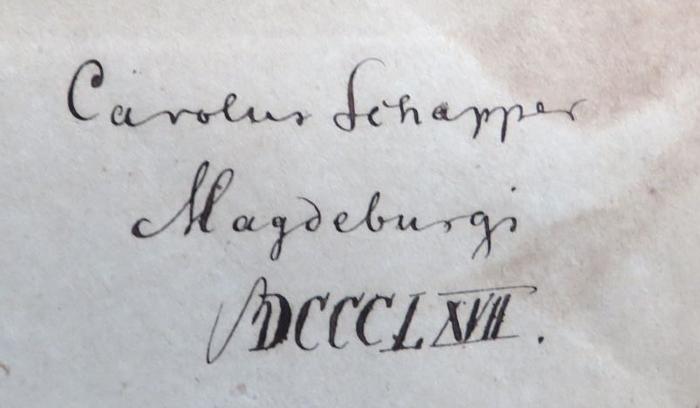 Carolus Schapper
Magdeburgi
MDCCCLXVII.